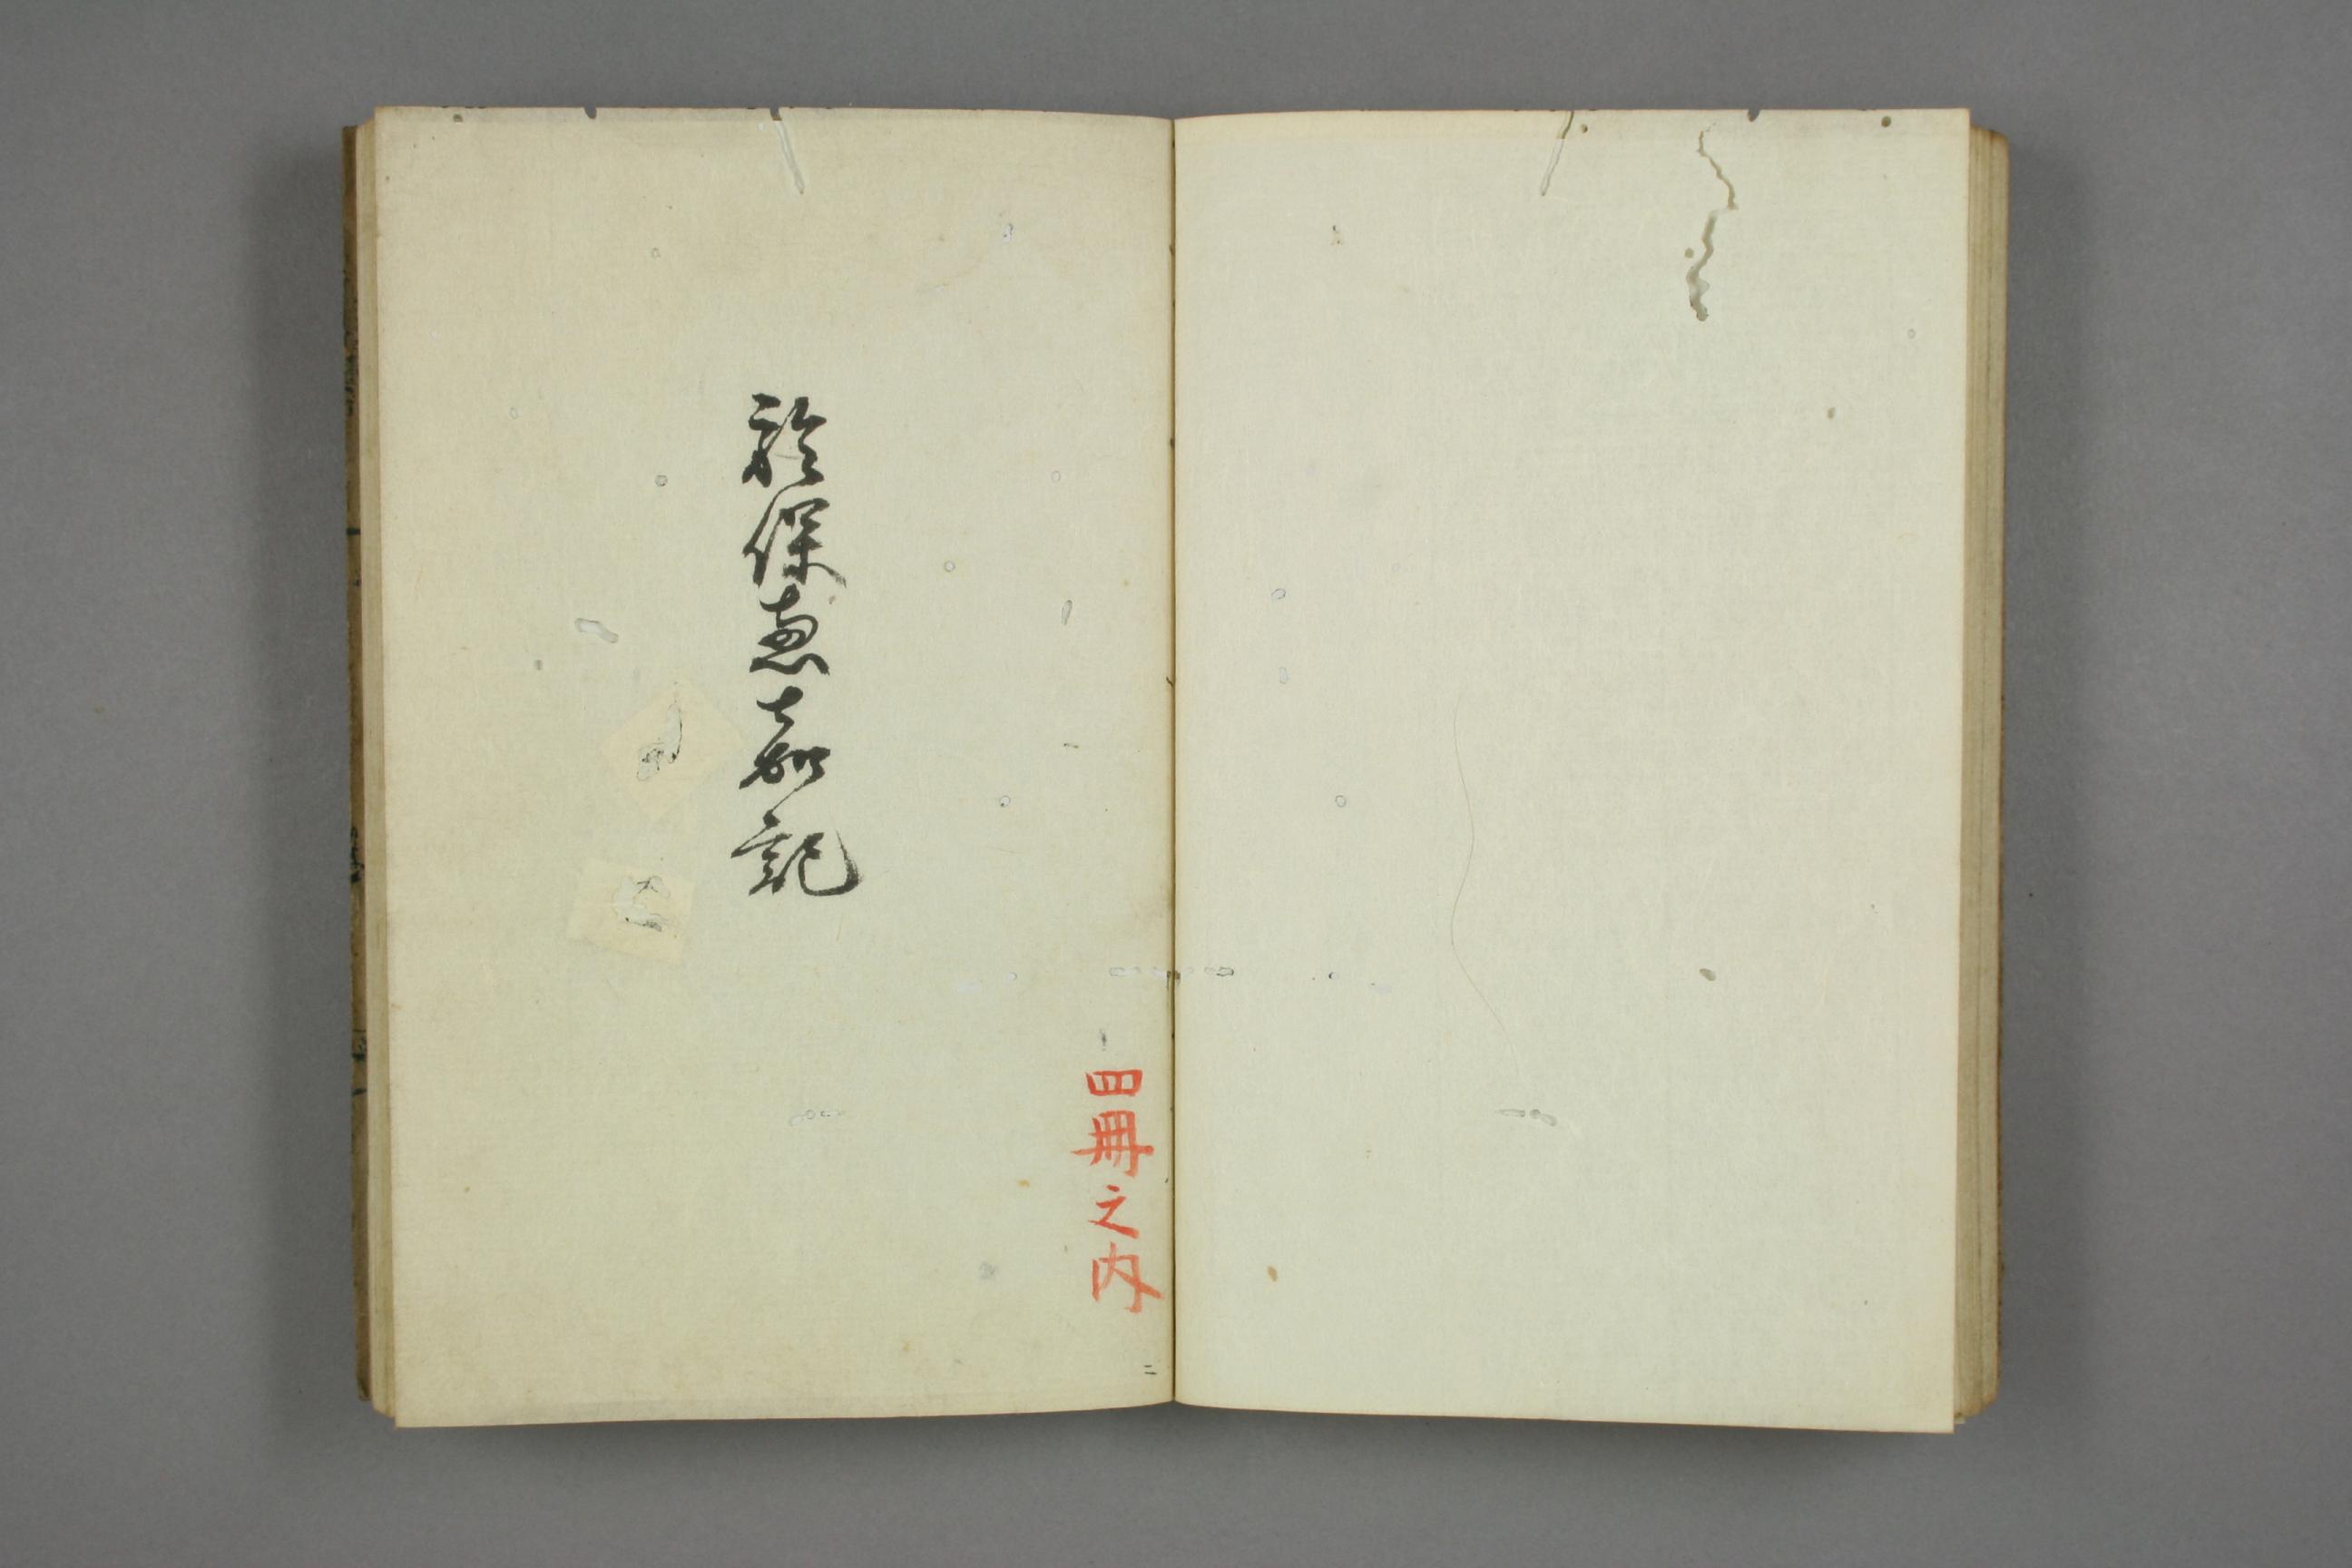 四冊之内
二
於保恵嘉記